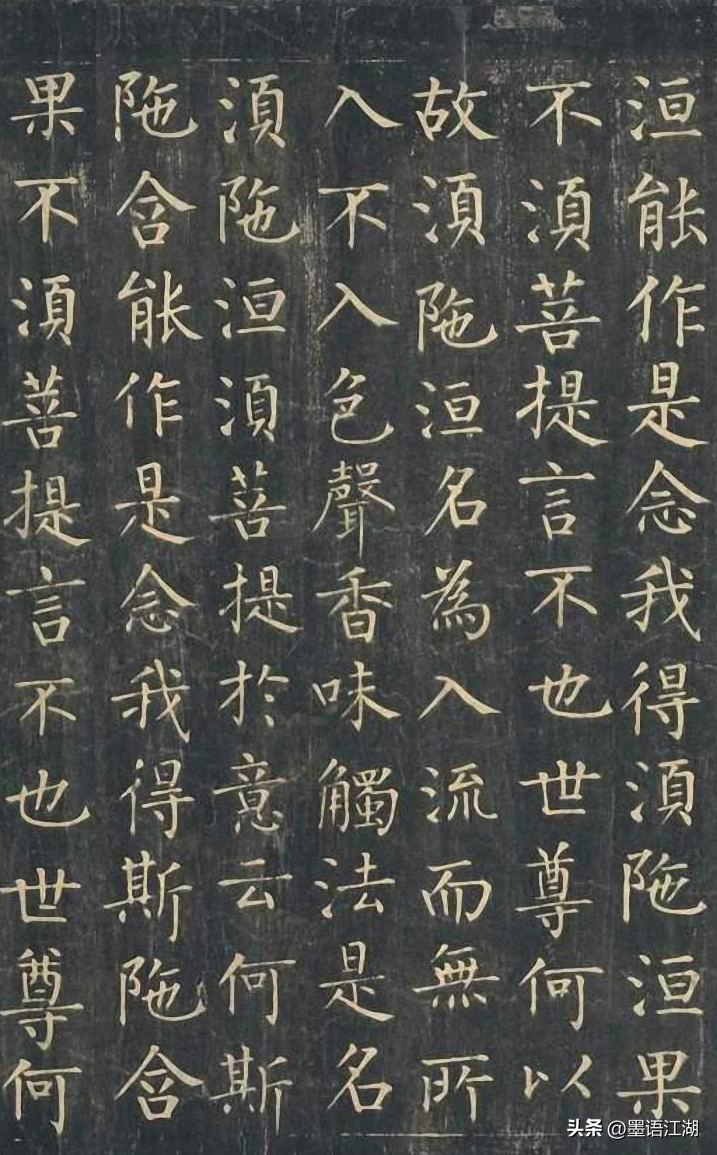 洹能作是念我得湏陁洹果
不湏菩提言不也世尊何以
故湏陁洹名為入流而無所
入不入色聲香味觸法是名
湏陁洹湏菩提於意云何斯
陁含能作是念我得斯陁含
果不湏菩提言不也世尊何
头条 @墨语江湖